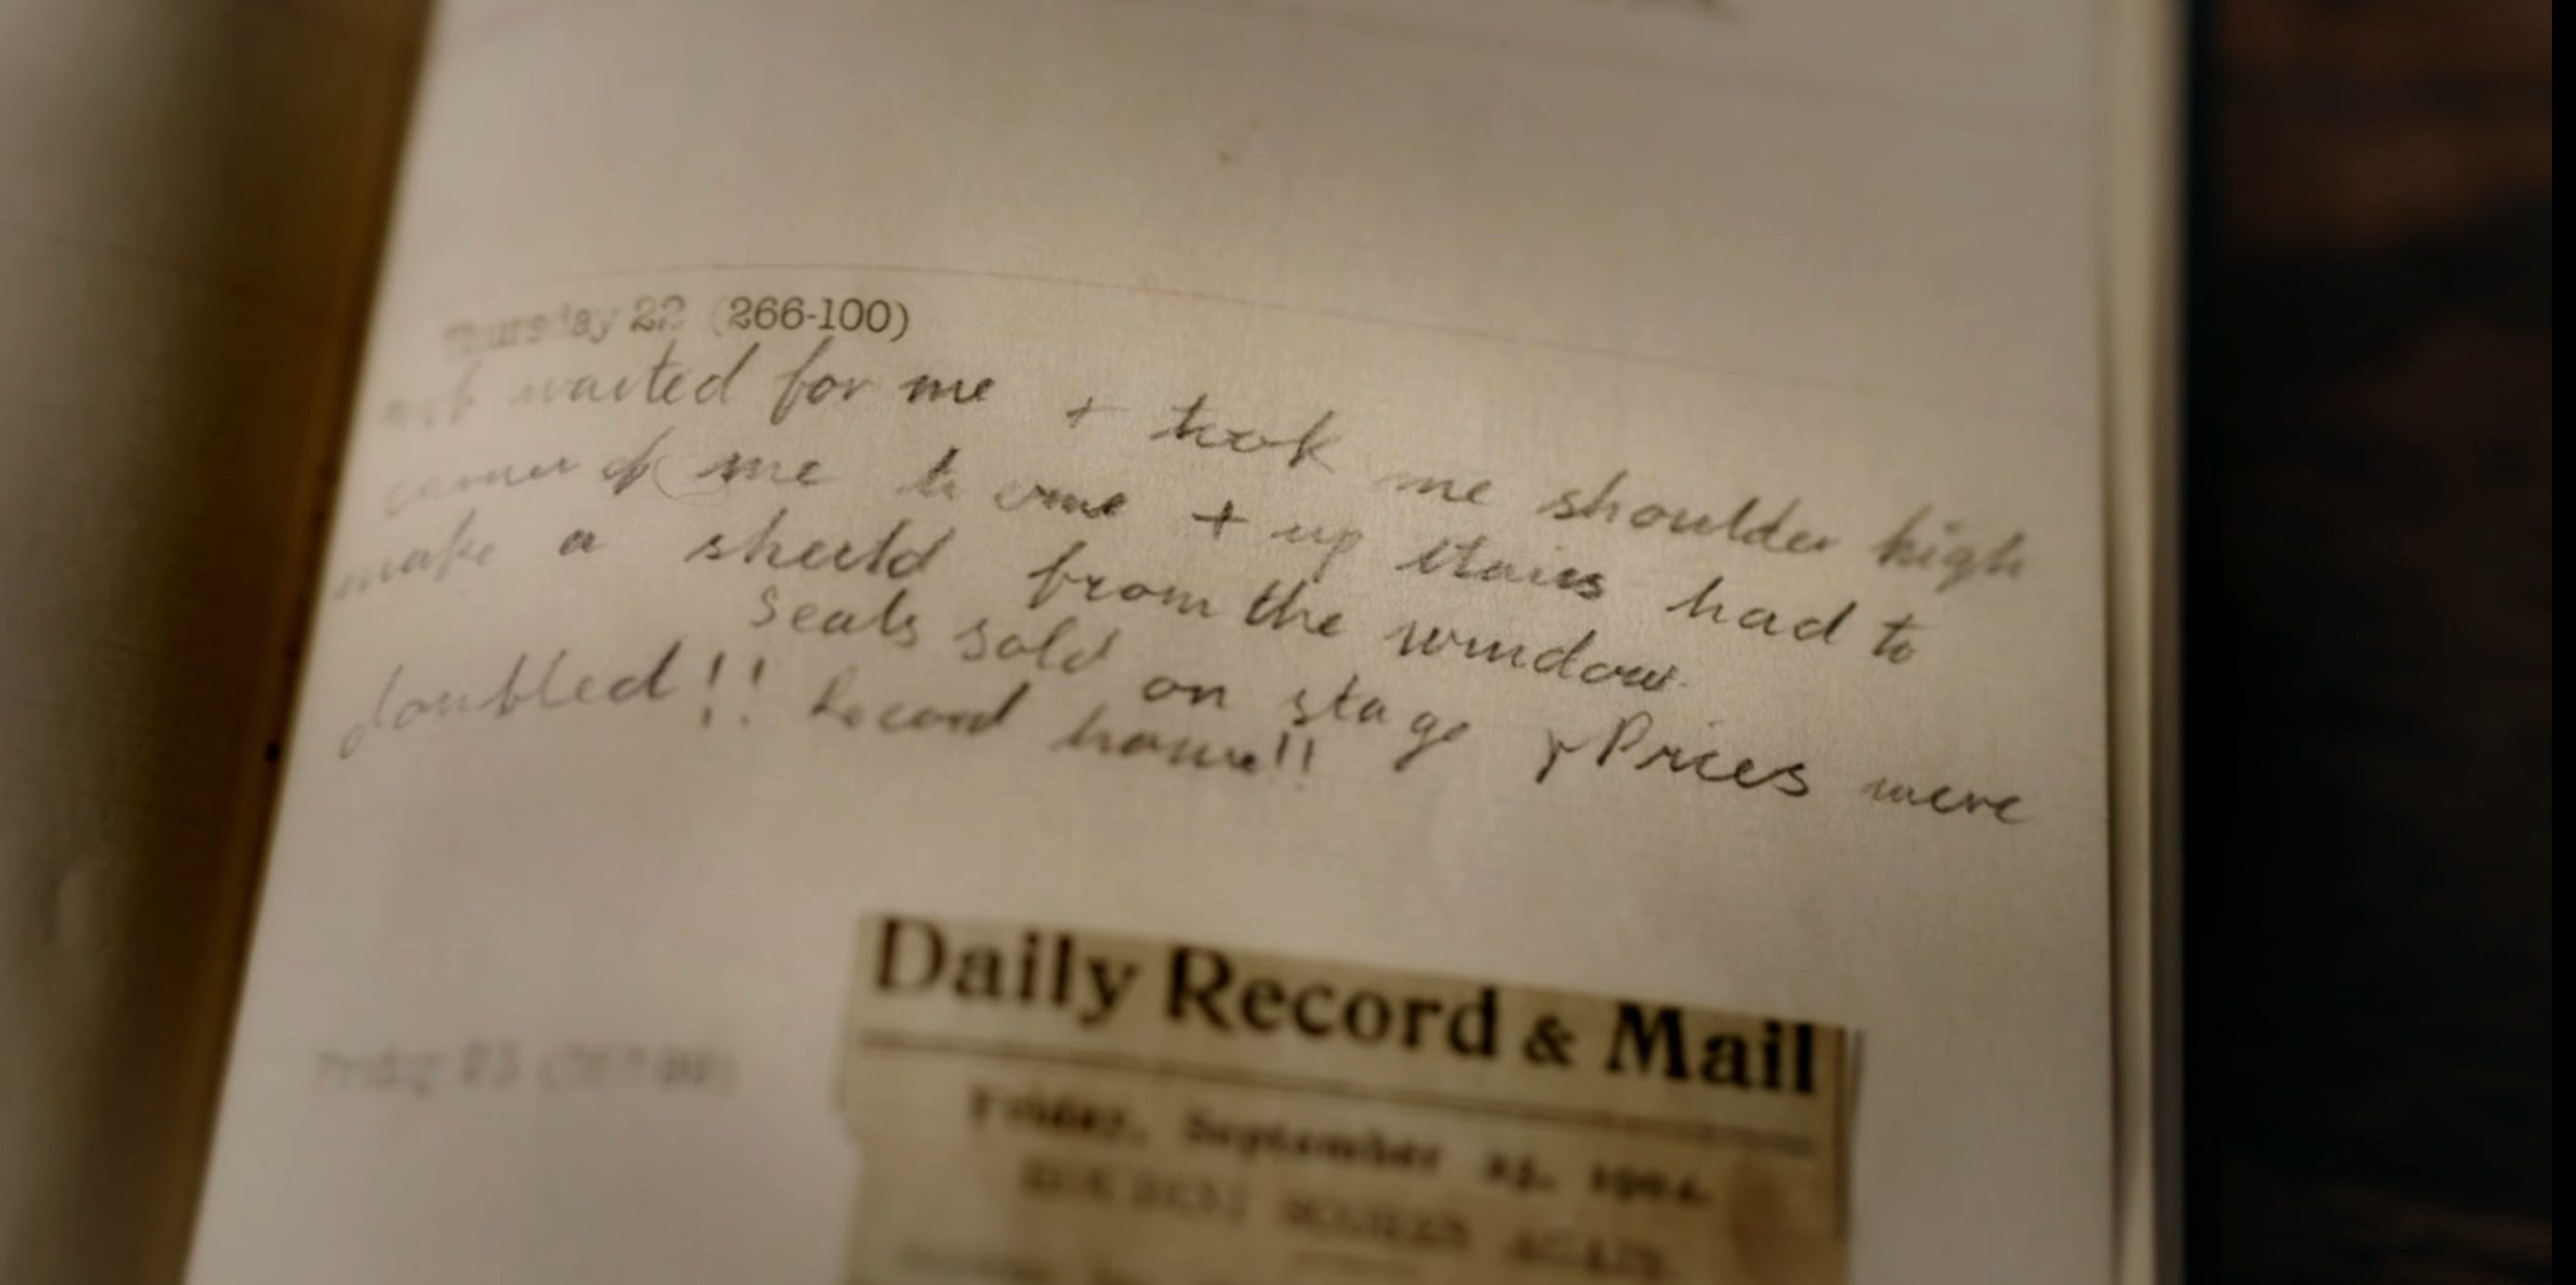 Thursday 22 (266-100)
mob waited for me + took me shoulder high
of me to + up stairs had to
make a from the window.
Seats sold on stage Prices were
doubled!! Record house!!
Daily Record & Mail
Friday 23
Friday, September 23, 1904.
HOUDINI AGAIN